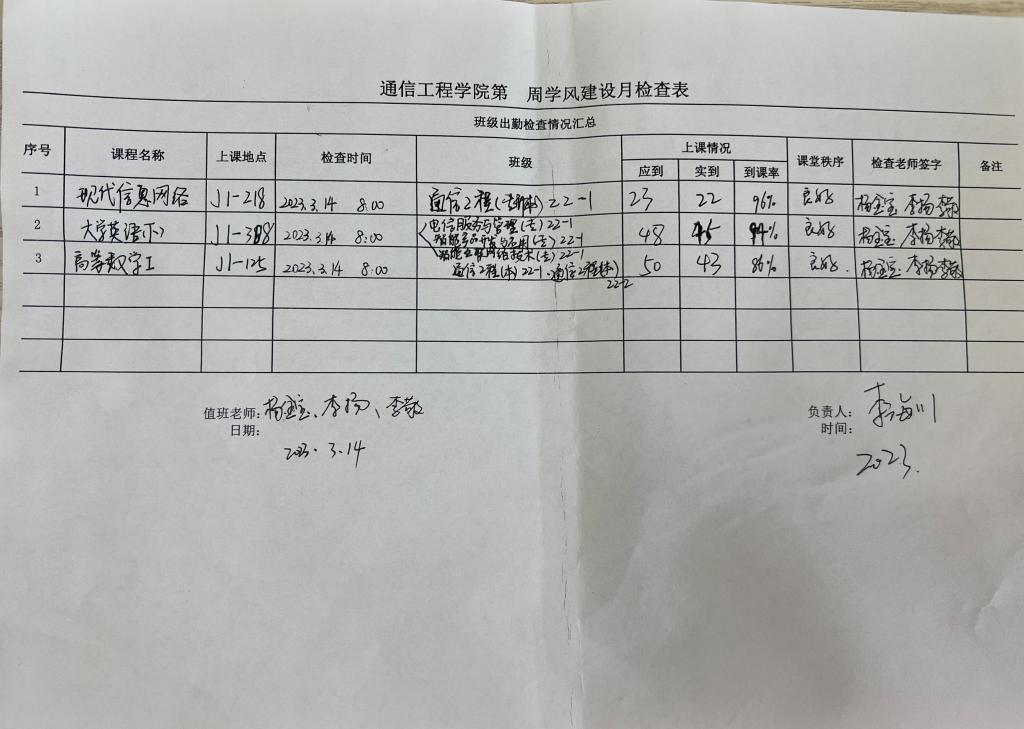 通信工程学院第 周学风建设月检查表
班级出勤检查情况汇总
序号 课程名称 上课地点 检查时间 班级 上课情况 课堂秩序 检查老师签字 备注
应到 实到 到课率
1 现代信息网络 J1-218 2023.3.14 8:00 通信工程 22-1 23 22 96% 良好 李扬
2 大学英语(下) 2023.3.14 8:00 电信服务与管理(专)22-1 48 45 94% 良好 李扬
智能产品开发与应用(专)22-1
3 高等数学I J1-125 2023.3.14 8:00 智能互联网络技术(专)22-1 50 43 86% 良好. 李扬
通信工程(本)22-1、通信工程(本)
22-2
值班老师: 李扬、 负责人:
日期: 时间:
2023.3.14 2023.